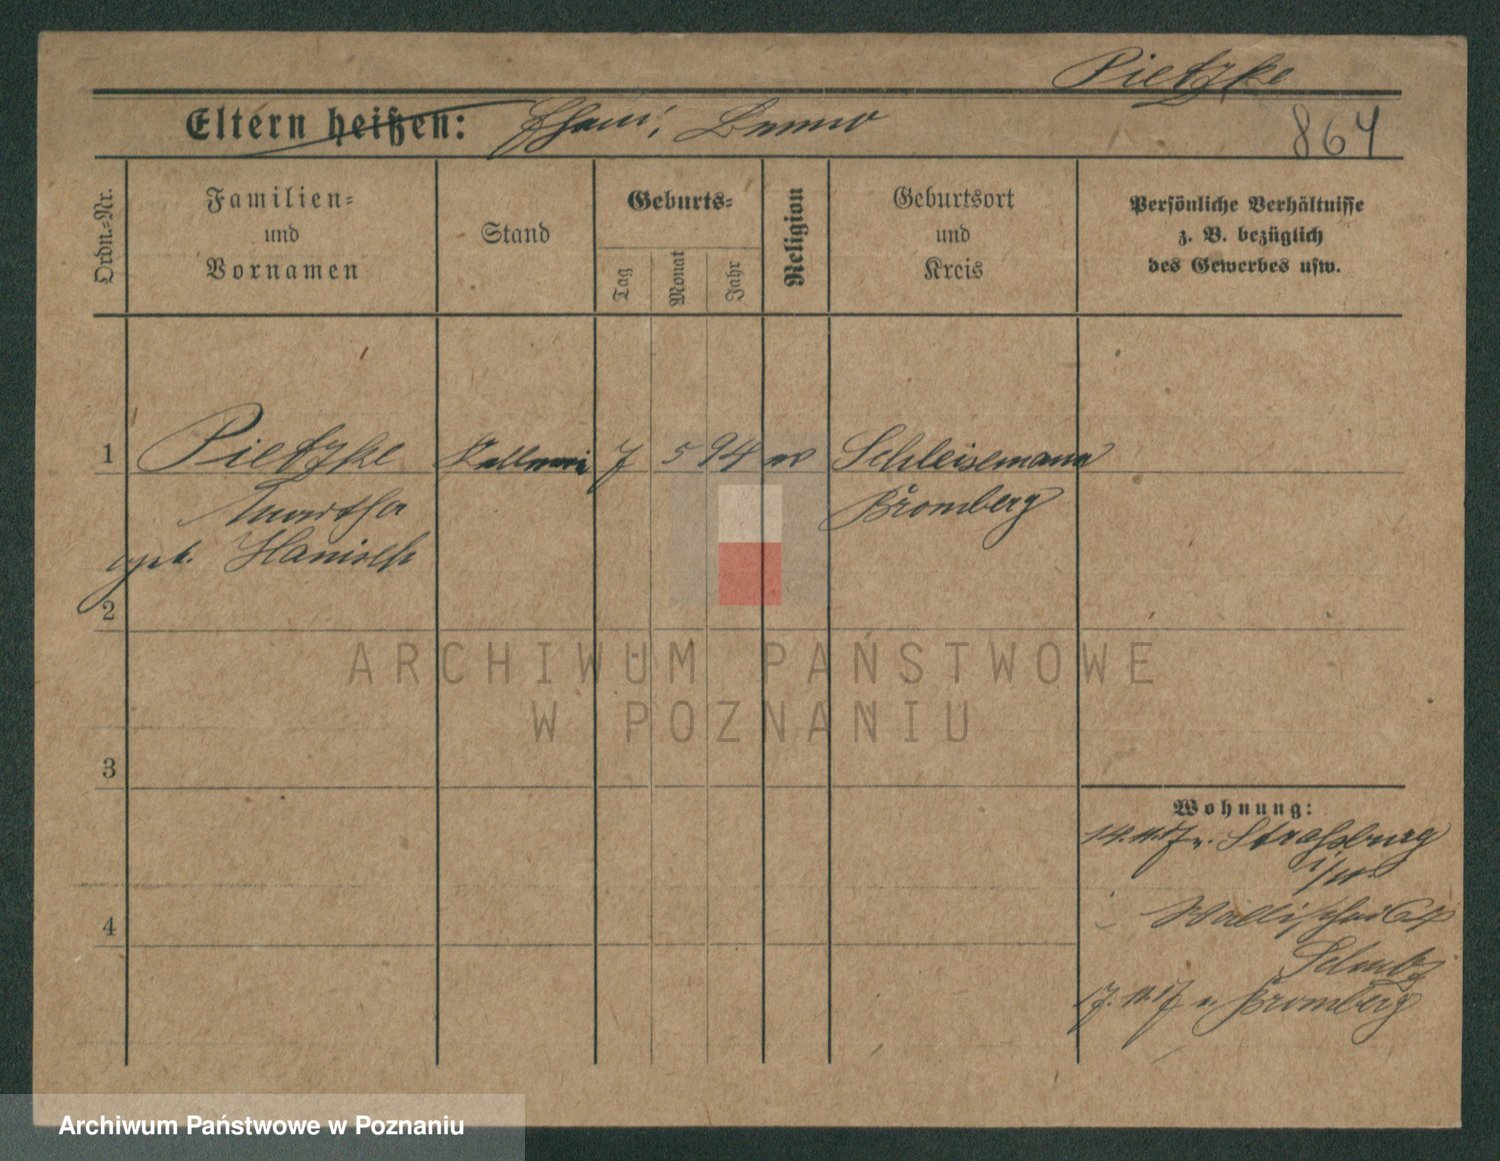 Pietzke
Eltern heißen: Benno
864
Ordn.-Nr.
Familien-
und
Vornamen
Stand
Geburts-
Tag
Monat
Jahr
Religion
Geburtsort
und
Kreis
Persönliche Verhältnisse
z. B. bezüglich
des Gewerbes usw.
1 Pietzke 7 5 94 Schleisemana
Martha Bromberg
geb. Hanisch
2
ARCHIWUM PAŃSTWOWE
W POZNANIU
3
Wohnung:
14. 11. 17 v. Straßburg
Wallischei
4
17. 11. 17 n. Bromberg
Archiwum Państwowe w Poznaniu